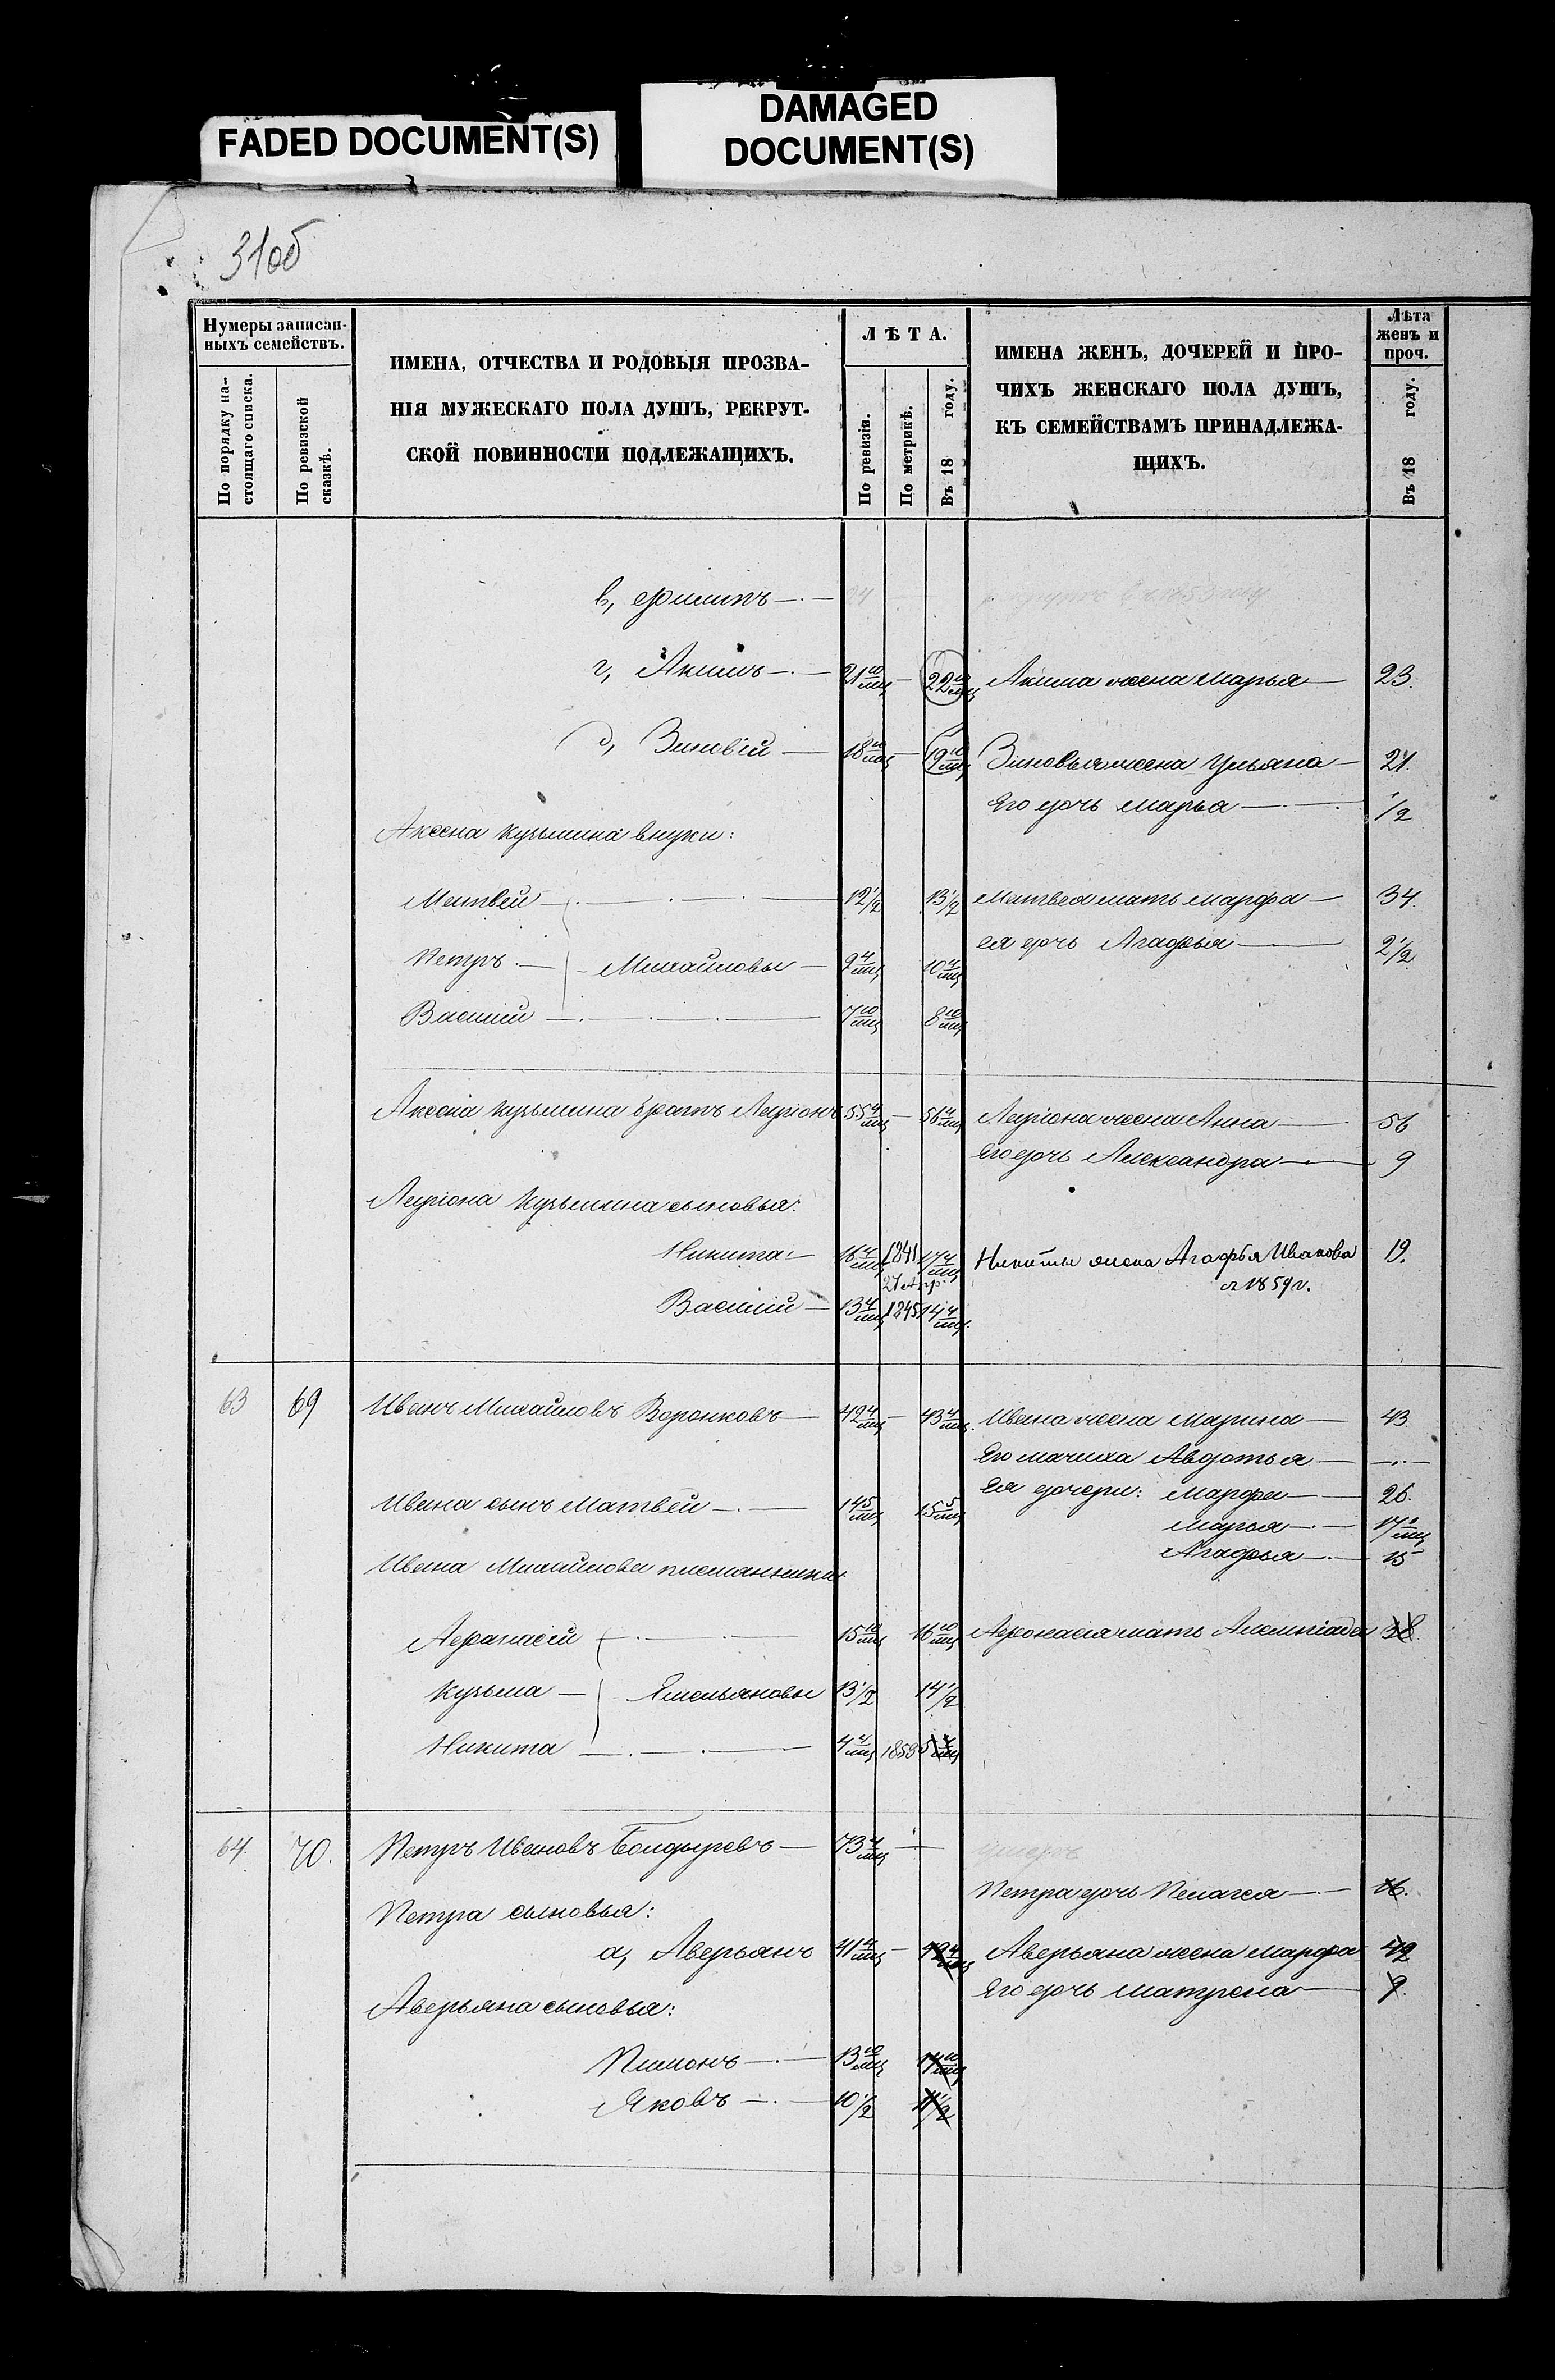 FADED DOCUMENT(S)
DAMAGED
DOCUMENT(S)
31об
Нумеры записан-
ныхъ семействъ.
По порядку на-
стоящаго списка.
По ревизской
сказкѣ.
ИМЕНА, ОТЧЕСТВА И РОДОВЫЯ ПРОЗВА-
НІЯ МУЖЕСКАГО ПОЛА ДУШЪ, РЕКРУТ-
СКОЙ ПОВИННОСТИ ПОДЛЕЖАЩИХЪ.
ЛѢТА.
По ревизіи.
По метрикѣ.
Въ 18 году.
ИМЕНА ЖЕНЪ, ДОЧЕРЕЙ И ПРО-
ЧИХЪ ЖЕНСКАГО ПОЛА ДУШЪ,
КЪ СЕМЕЙСТВАМЪ ПРИНАДЛЕЖА-
ЩИХЪ.
Лѣта
женъ и
проч.
Въ 18 году.
в, Филипъ — 24
г, Акимъ — 21 10/мц — 22 10/мц Акима жена Марья — 23.
д, Зиновій — 18 10/мц — 19 10/мц Зиновья жена Ульяна — 21.
Его дочь Марья — 1/2
Аксена Кузьмина внуки:
Матвей — 12 1/2 13 1/2 Матвея мать Марфа — 34.
Петръ — Михайловы — 9 4/мц 10 4/мц ея дочь Агафья — 2 1/2
Василій — 7 10/мц 8 10/мц
Аксена Кузьмина братъ Ларіонъ 55 4/мц — 56 4/мц Ларіона жена Анна — 56
Его дочь Александра — 9
Ларіона Кузьмина сыновья:
Никита — 16 4/мц 1841 17 4/мц Никиты жена Агафья Иванова 19.
27 Апр. съ 1859 г.
Василій — 13 4/мц 1845 14 4/мц.
63 69 Иванъ Михайловъ Воронковъ — 42 4/мц — 43 4/мц. Ивана жена Марина — 43
Его мачиха Авдотья —
Ея дочери: Марфа — 26.
Ивана сынъ Матвей — 14 5/мц 15 5/мц
Марья — 17
Агафья — 15
Ивана Михайлова племянники
Афанасій — 15 10/мц 16 10/мц Афонасія мать 38.
Кузьма — Емельяновы 13 1/2 14 1/2
Никита — 4 4/мц 1853 5 4/мц
64. 70. Петръ Ивановъ Болдыревъ — 73 4/мц — умеръ
Петра дочь Пелагея — 16.
Петра сыновья:
а, Аверьянъ 41 4/мц — 42 4/мц Аверьяна жена Марфа 42
Его дочь Матрена — 9.
Аверьяна сыновья:
Пименъ — 13 10/мц 14 10/мц
Яковъ — 10 1/2 11 1/2